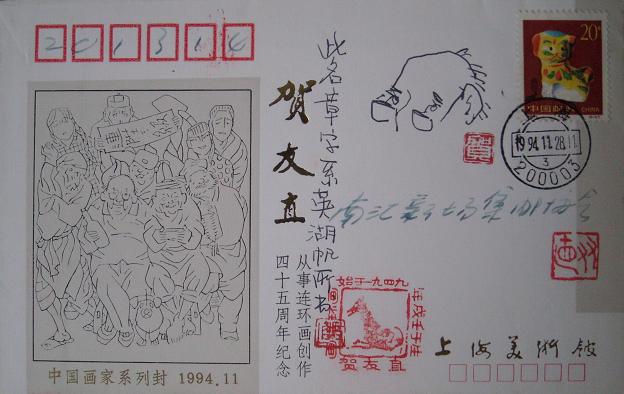 201314
20分
中国邮政 CHINA
上海
1994.11.28.11
3
200003
贺友直
此名章字系英湖帆所书
南汇新场集邮协会
从事连环画创作
四十五周年纪念
始于一九四九
贺友直
上海美术馆
中国画家系列封 1994.11